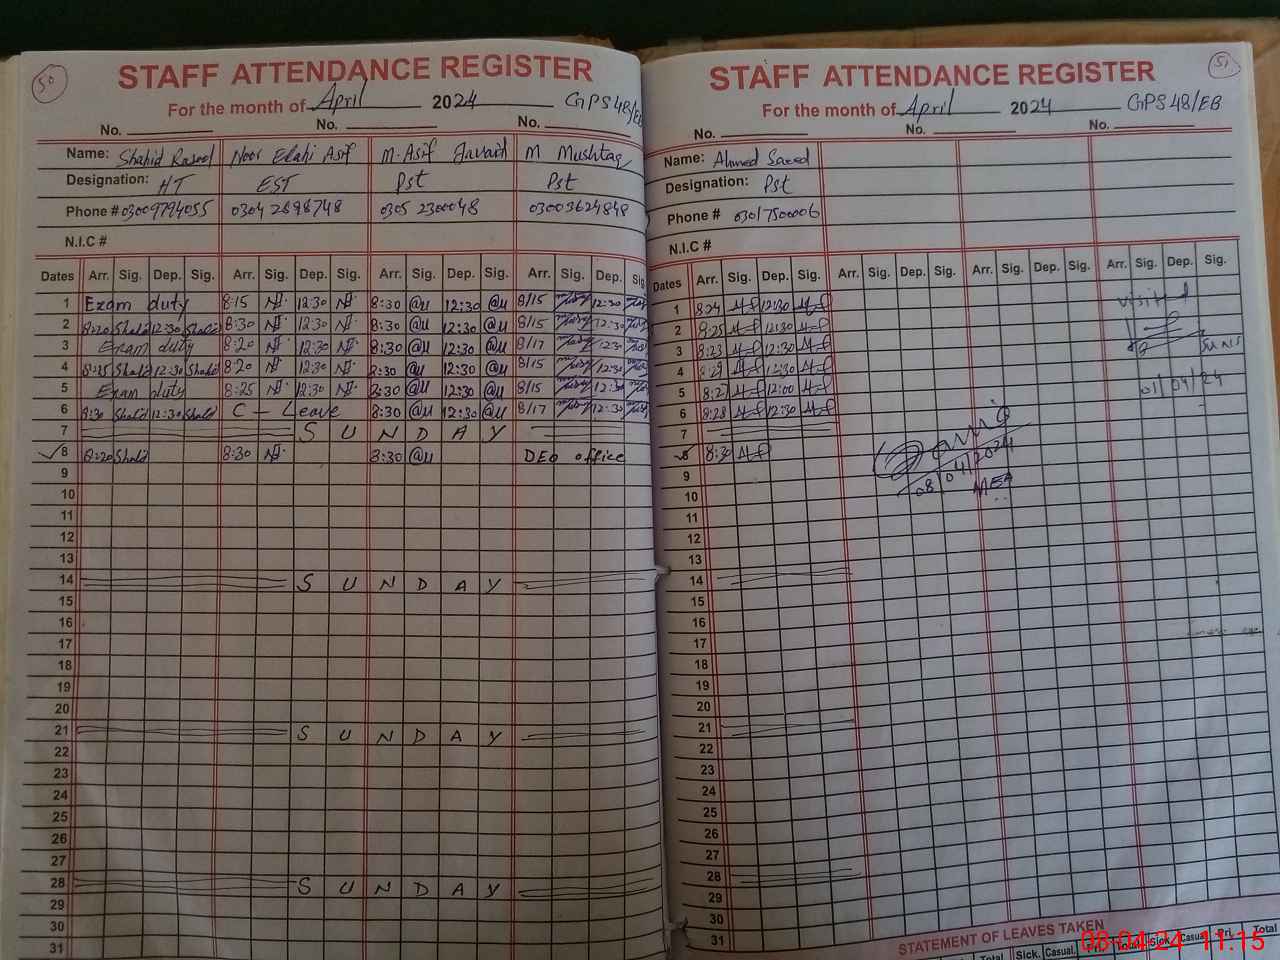 50
STAFF ATTENDANCE REGISTER
For the month of April 2024 GPS 48/EB
No. No. No.
Name: Shahid Rasool Noor Elahi Asif M. Asif Javaid M Mushtaq
Designation: HT EST Pst Pst
Phone # 03009794055 0304 2898748 0305 2300048 03003624848
N.I.C #
Dates Arr. Sig. Dep. Sig. Arr. Sig. Dep. Sig. Arr. Sig. Dep. Sig. Arr. Sig. Dep. Sig
1 Exam duty 8:15 12:30 8:30 12:30 8/15 12:30
2 8:20 Shahid 12:30 Shahid 8:30 12:30 8:30 12:30 8/15 12:30
3 Exam duty 8:20 12:30 8:30 12:30 8/17 12:30
4 8:25 Shahid 12:30 Shahid 8:20 12:30 8:30 12:30 8/15 12:30
5 Exam duty 8:25 12:30 8:30 12:30 8/15 12:30
6 8:30 Shahid 12:30 Shahid C - Leave 8:30 12:30 8/17 12:30
7 S U N D A Y
8 8:20 Shahid 8:30 8:30 DEO office
9
10
11
12
13
14 S U N D A Y
15
16
17
18
19
20
21 S U N D A Y
22
23
24
25
26
27
28 S U N D A Y
29
30
31
51
STAFF ATTENDANCE REGISTER
For the month of April 2024 GPS 48/EB
No. No. No.
Name: Ahmed Saeed
Designation: Pst
Phone # 03017500006
N.I.C #
Dates Arr. Sig. Dep. Sig. Arr. Sig. Dep. Sig. Arr. Sig. Dep. Sig. Arr. Sig. Dep. Sig.
1 8:24 12:30 visited
2 8:25 12:30
3 8:23 12:30
4 8:29 12:30
5 8:27 12:00 01/04/24
6 8:28 12:30
7
8 8:30
9 08/04/2024
10 MEA
11
12
13
14
15
16
17
18
19
20
21
22
23
24
25
26
27
28
29
30
31
STATEMENT OF LEAVES TAKEN
Total Sick. Casual. Pri. Total Sick. Casual. Pri. Total
08-04-24 11:15